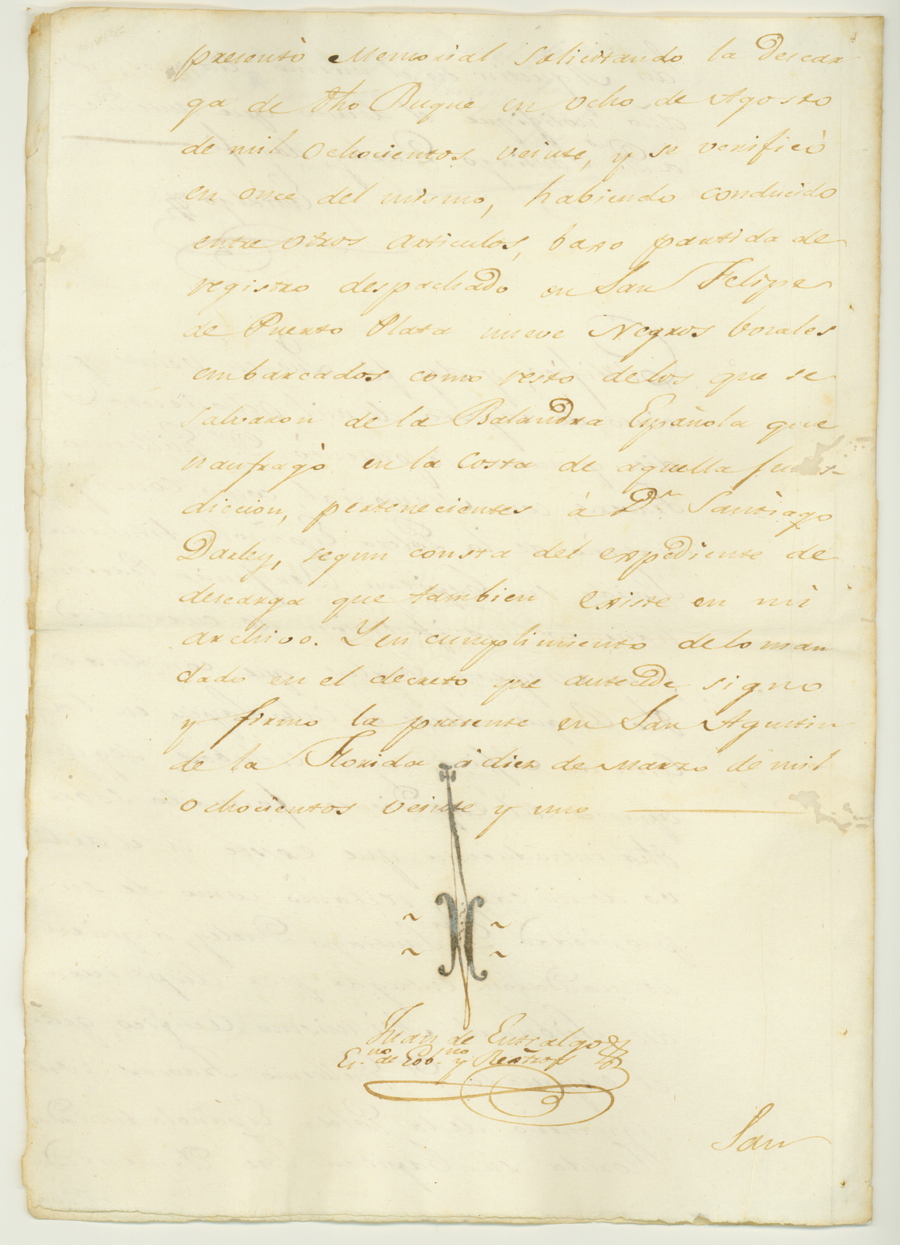 presentò Memorial solicitando la Descar-
ga de dho Buque en ocho de Agosto
de mil ochocientos veinte, y se verificò
en once del mismo, habiendo conducido
entre otros articulos, baxo partida de
registro despachado en San Felipe
de Puerto Plata nueve Negros bosales
embarcados como resto de los que se
salvaron de la Balandra Española que
naufragò en la costa de aquella juris-
diccion, pertenecientes à Dn Santiago
Darley, segun consta del expediente de
descarga que tambien existe en mi
archivo. Y en cumplimiento de lo man
dado en el decreto que antecede signo
y firmo la presente en San Agustin
de la Florida à diez de Marzo de mil
ochocientos veinte y uno
Juan de Entralgo
Esno de Gobno y
San